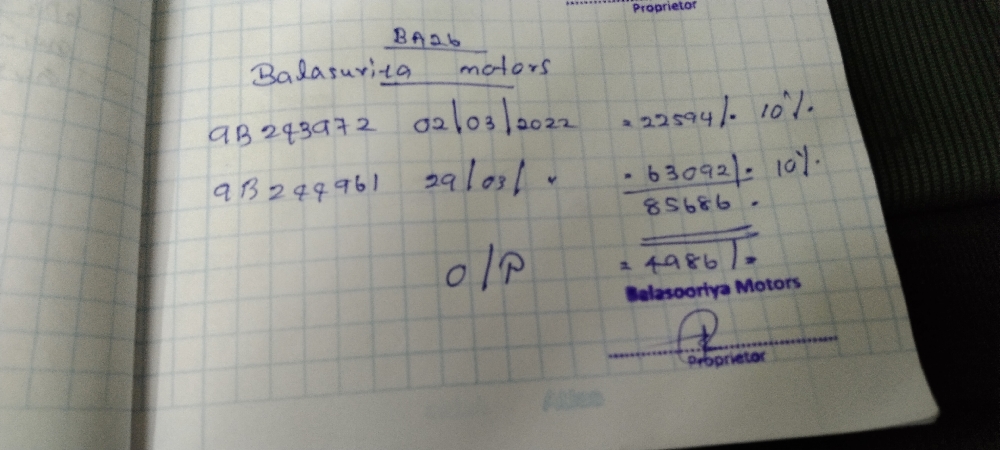 Proprietor
BA26
Balasuriya motors
9B243972 02/03/2022 = 22594/= 10%.
9B244961 29/03/ " = 63092/= 10%.
85686.
O/P = 4986/=
Balasooriya Motors
Proprietor